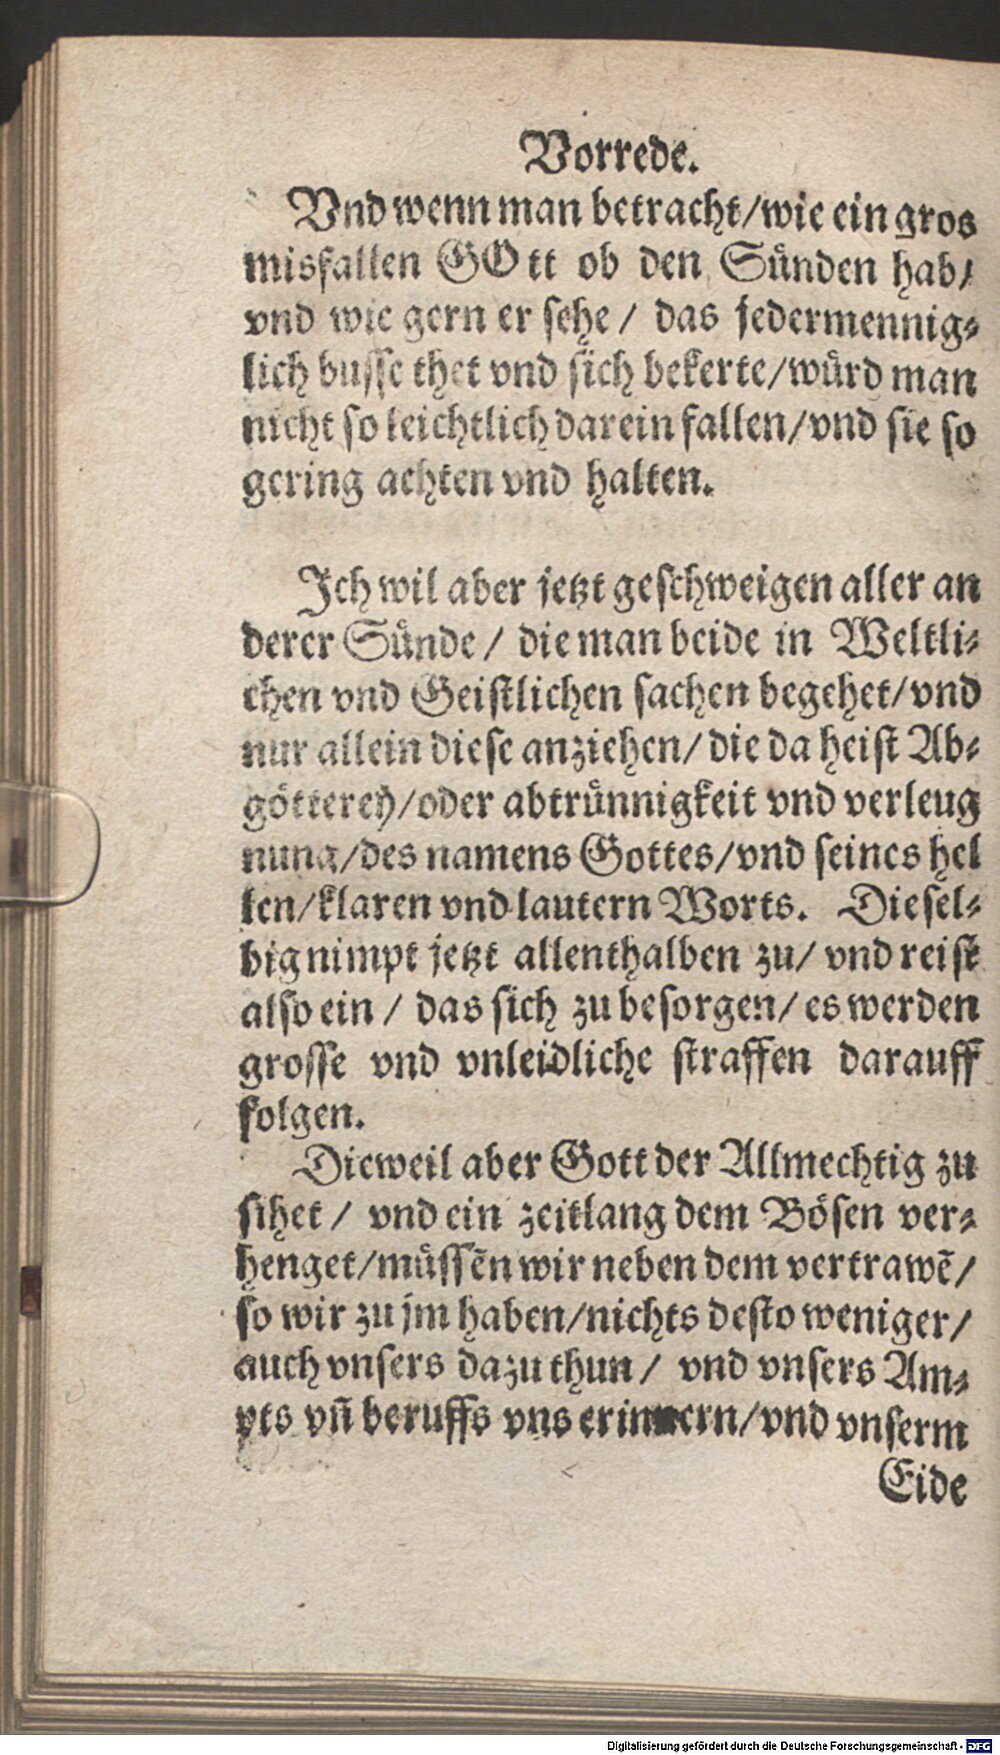 Vorrede.
Vnd wenn man betracht/wie ein gros
misfallen GOtt ob den Sünden hab/
vnd wie gern er sehe / das jedermennig⸗
lich busse thet vnd sich bekerte/würd man
nicht so leichtlich darein fallen/vnd sie so
gering achten vnd halten.
Ich wil aber jetzt geschweigen aller an
derer Sünde / die man beide in Weltli⸗
chen vnd Geistlichen sachen begehet/vnd
nur allein diese anziehen/ die da heist Ab⸗
götterey/oder abtrünnigkeit vnd verleug
nung/des namens Gottes/vnd seines hel
len/klaren vnd lautern Worts. Diesel⸗
big nimpt jetzt allenthalben zu/ vnd reist
also ein / das sich zu besorgen/ es werden
grosse vnd vnleidliche straffen darauff
folgen.
Dieweil aber Gott der Allmechtig zu
sihet / vnd ein zeitlang dem Bösen ver⸗
henget/müssẽn wir neben dem vertrawẽ/
so wir zu jm haben/nichts desto weniger/
auch vnsers dazu thun / vnd vnsers Am⸗
pts vñ beruffs vns erinnern/vnd vnserm
Eide
Digitalisierung gefördert durch die Deutsche Forschungsgemeinschaft - DFG